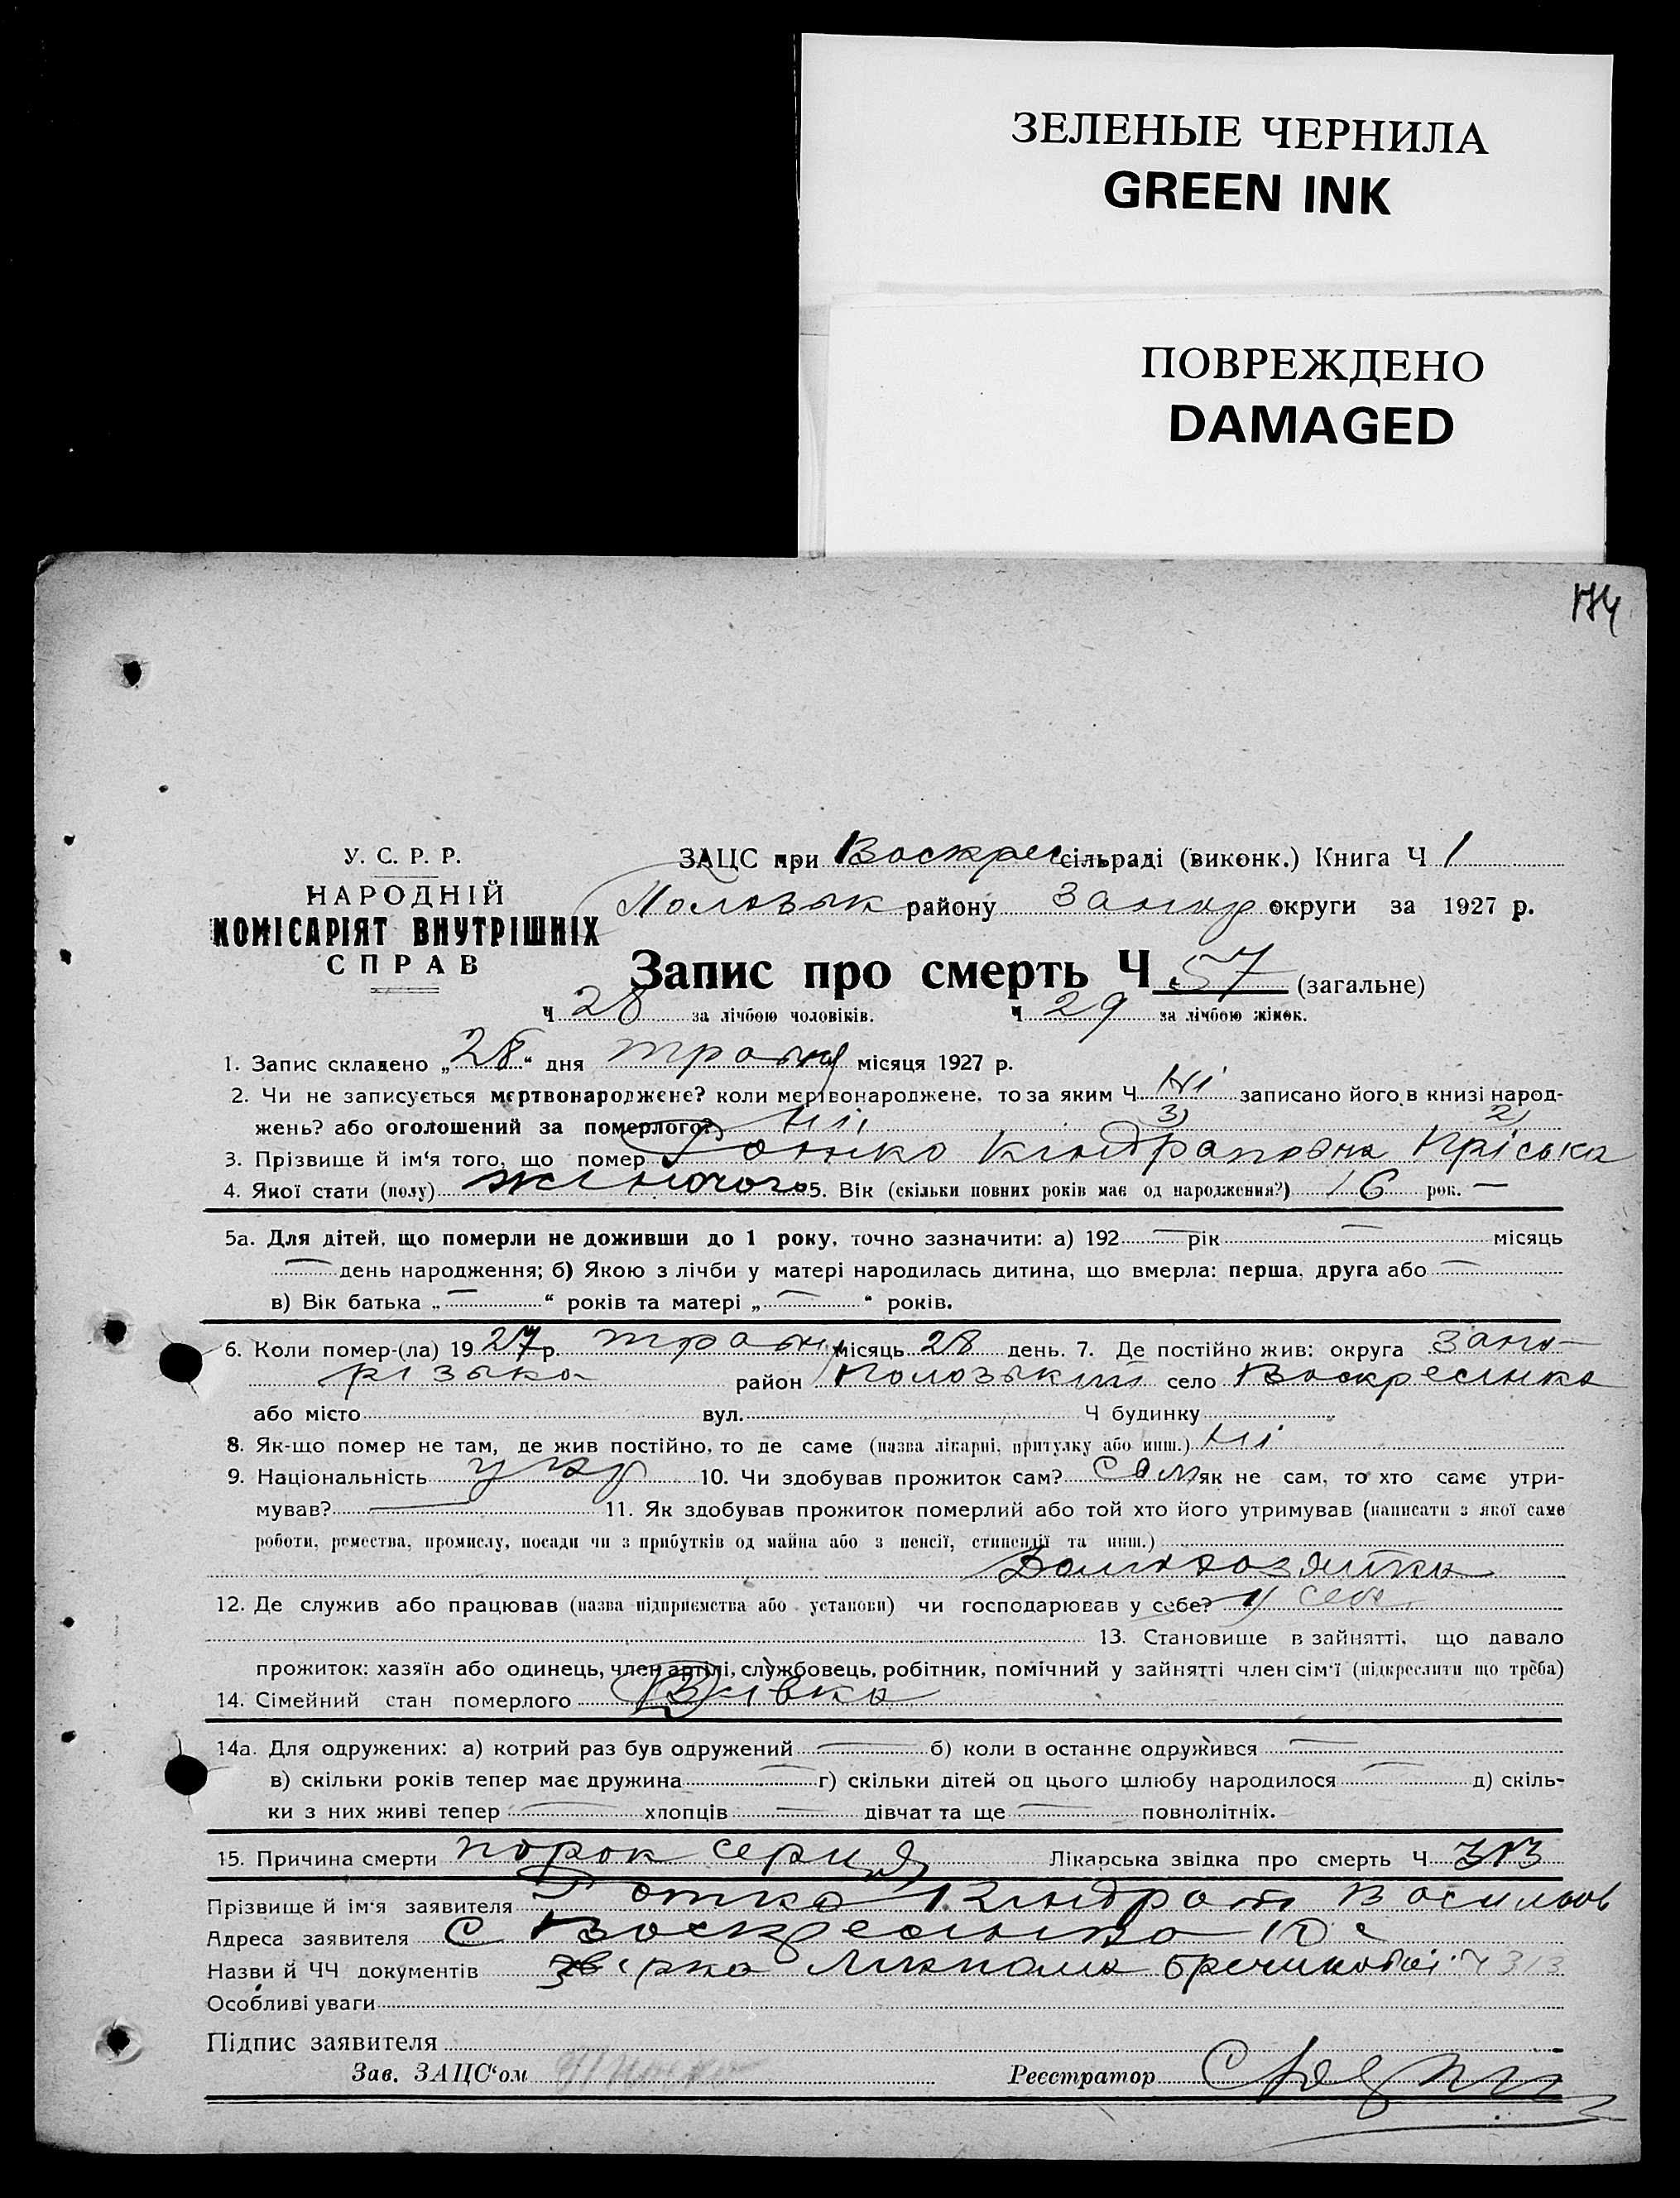 ЗЕЛЕНЫЕ ЧЕРНИЛА
GREEN INK
ПОВРЕЖДЕНО
DAMAGED
174
У. С. Р. Р.
НАРОДНІЙ
КОМІСАРІЯТ ВНУТРІШНІХ
СПРАВ
ЗАЦС при Воскрес сільраді (виконк.) Книга Ч 1
Пологзьк району Запор округи за 1927 р.
Запис про смерть Ч 57 (загальне)
Ч 28 за лічбою чоловіків. Ч 29 за лічбою жінок.
1. Запис складено „28“ дня травня місяця 1927 р.
2. Чи не записується мертвонароджене? коли мертвонароджене, то за яким Ч Ні записано його в книзі народ-
жень? або оголошений за померлого? Ні 3) 2)
3. Прізвище й ім‘я того, що помер Кіндратовна Пріська
4. Якої стати (полу) жіночого 5. Вік (скільки повних років має од народження?) 16 рок. —
5а. Для дітей, що померли не доживши до 1 року, точно зазначити: а) 192 — рік — місяць
— день народження; б) Якою з лічби у матері народилась дитина, що вмерла: перша, друга або —
в) Вік батька „—“ років та матері „—“ років.
6. Коли помер-(ла) 1927 р. травня місяць 28 день. 7. Де постійно жив: округа Запо-
різька район село Воскресінка
або місто вул. Ч будинку
8. Як-що помер не там, де жив постійно, то де саме (назва лікарні, притулку або инш.) Ні
9. Національність укр 10. Чи здобував прожиток сам? сам як не сам, то хто саме утри-
мував? — 11. Як здобував прожиток померлий або той хто його утримував (написати з якої саме
роботи, ремества, промислу, посади чи з прибутків од майна або з пенсії, стипендії та инш.)
Домхозяйка
12. Де служив або працював (назва підприємства або установи) чи господарював у себе? у себе
13. Становище в зайнятті, що давало
прожиток: хазяїн або одинець, член артілі, службовець, робітник, помічний у зайнятті член сім‘ї (підкреслити що треба)
14. Сімейний стан померлого Дівка
14а. Для одружених: а) котрий раз був одружений — б) коли в останнє одружився —
в) скільки років тепер має дружина — г) скільки дітей од цього шлюбу народилося — д) скіль-
ки з них живі тепер — хлопців — дівчат та ще — повнолітніх.
15. Причина смерти порок серця Лікарська звідка про смерть Ч 313
Прізвище й ім‘я заявителя Кіндрат Васильов
Адреса заявителя с Воскресінка
Назви й ЧЧ документів Ч 313
Особливі уваги
Підпис заявителя
Зав. ЗАЦС‘ом Реєстратор